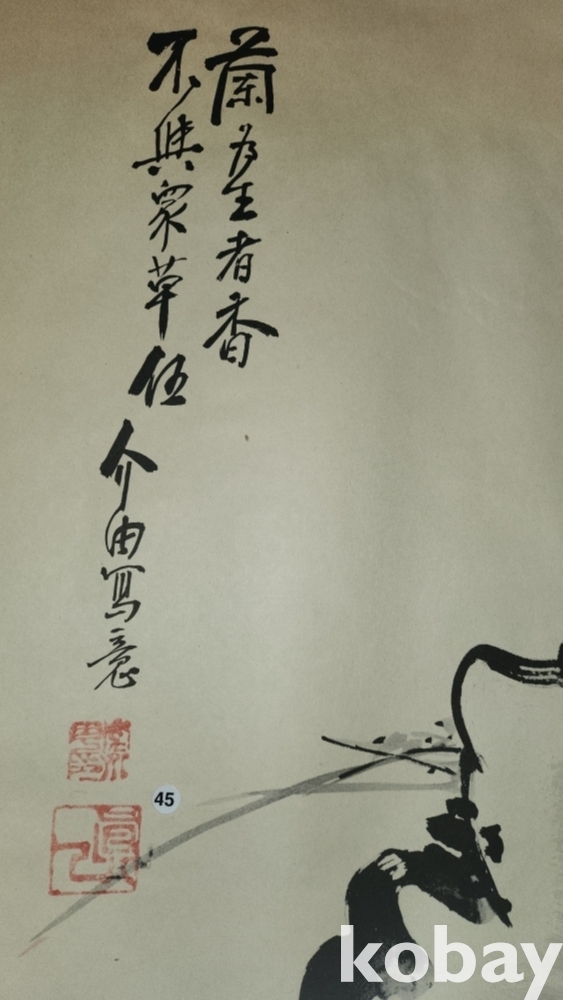 蘭為王者香
不與衆草伍
介由寫意
45
kobay